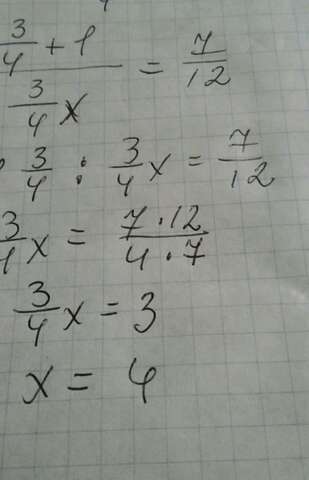 (3/4 + 1) / (3/4 x) = 7/12
3/4 : 3/4 x = 7/12
3/4 x = (7 · 12) / (4 · 7)
3/4 x = 3
x = 4